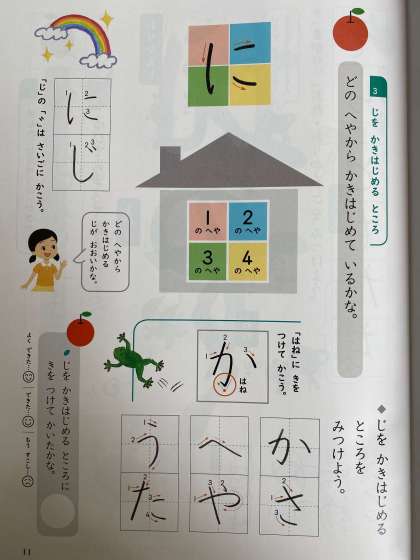 3 じを かきはじめる ところ
どの へやから かきはじめて いるかな。
◆じを かきはじめる
ところを
みつけよう。
に
1のへや
2のへや
3のへや
4のへや
「はね」に きを
つけて かこう。
か
はね
か
さ
へ
や
う
た
に
じ
「じ」の「〃」は さいごに かこう。
どの へやから
かきはじめる
じが おおいかな。
じを かきはじめる ところに
きを つけて かいたかな。
よく できた…
できた…
もう すこし…
11